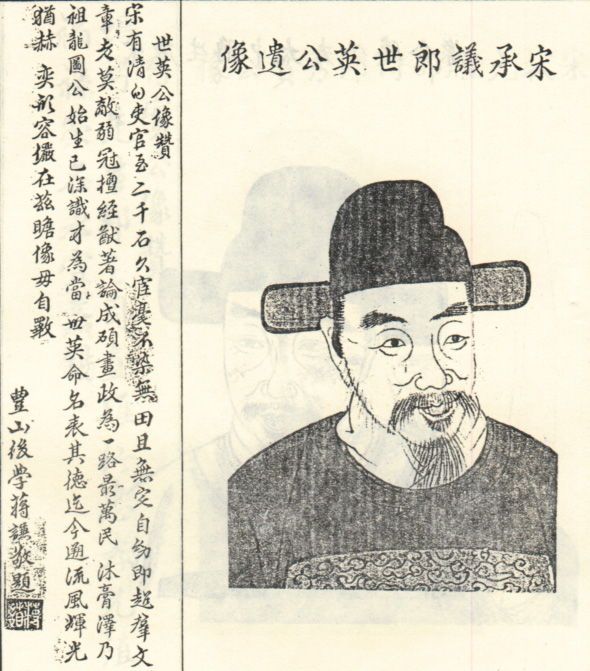 宋承議郎世英公遺像
世英公像贊
宋有清白吏官至二千石久宦橐不染無田且無宅自幼即超羣文
章老莫敵弱冠擅經猷著論成碩畫政為一路最萬民沐膏澤乃
祖龍圖公始生已深識才為當世英命名表其德迄今遡流風輝光
猶赫奕形容儼在玆瞻像毋自斁
豐山後學蔣敬題